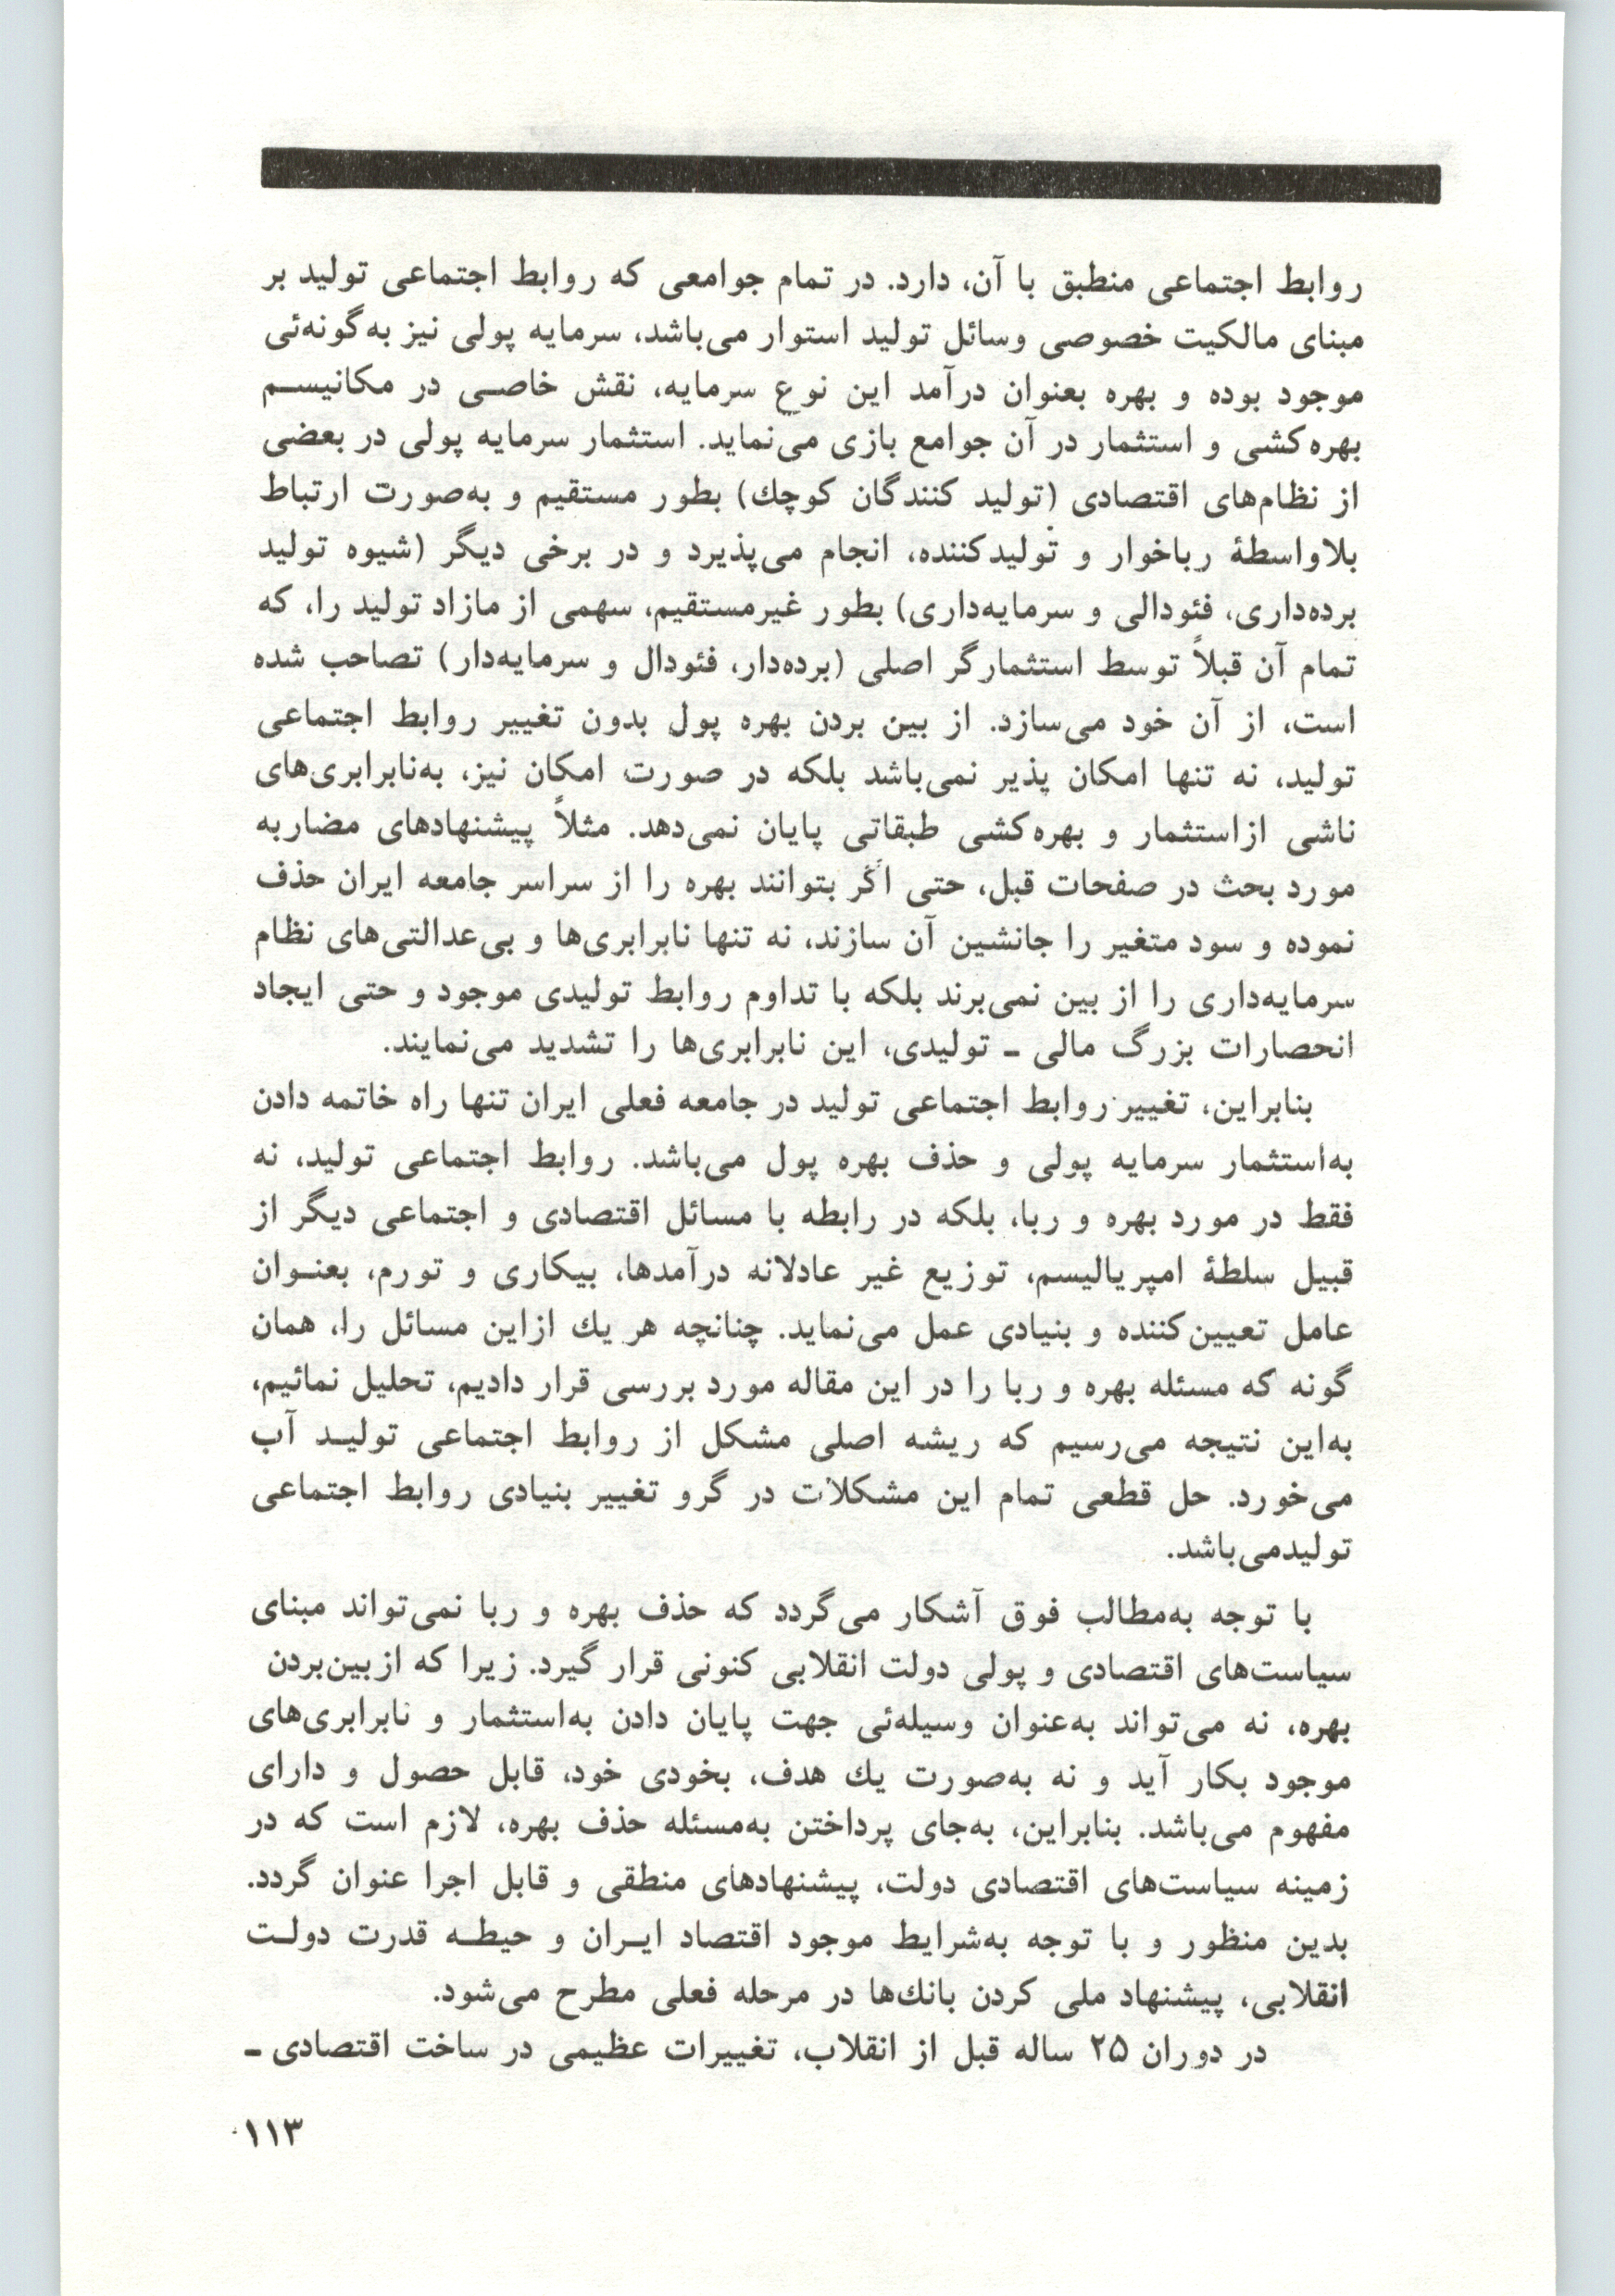 روابط اجتماعی منطبق با آن، دارد. در تمام جوامعی که روابط اجتماعی تولید بر
مبنای مالکیت خصوصی وسائل تولید استوار می‌باشد، سرمایه پولی نیز به‌گونه‌ئی
موجود بوده و بهره بعنوان درآمد این نوع سرمایه، نقش خاصـی در مکانیسـم
بهره‌کشی و استثمار در آن جوامع بازی می‌نماید. استثمار سرمایه پولی در بعضی
از نظام‌های اقتصادی (تولید کنندگان کوچك) بطور مستقیم و به‌صورت ارتباط
بلاواسطهٔ رباخوار و تولیدکننده، انجام می‌پذیرد و در برخی دیگر (شیوه تولید
برده‌داری، فئودالی و سرمایه‌داری) بطور غیرمستقیم، سهمی از مازاد تولید را، که
تمام آن قبلاً توسط استثمارگر اصلی (برده‌دار، فئودال و سرمایه‌دار) تصاحب شده
است، از آن خود می‌سازد. از بین بردن بهره پول بدون تغییر روابط اجتماعی
تولید، نه تنها امکان پذیر نمی‌باشد بلکه در صورت امکان نیز، به‌نابرابری‌های
ناشی ازاستثمار و بهره‌کشی طبقاتی پایان نمی‌دهد. مثلاً پیشنهادهای مضاربه
مورد بحث در صفحات قبل، حتی اگر بتوانند بهره را از سراسر جامعه ایران حذف
نموده و سود متغیر را جانشین آن سازند، نه تنها نابرابری‌ها و بی‌عدالتی‌های نظام
سرمایه‌داری را از بین نمی‌برند بلکه با تداوم روابط تولیدی موجود و حتی ایجاد
انحصارات بزرگ مالی ـ تولیدی، این نابرابری‌ها را تشدید می‌نمایند.
بنابراین، تغییر روابط اجتماعی تولید در جامعه فعلی ایران تنها راه خاتمه دادن
به‌استثمار سرمایه پولی و حذف بهره پول می‌باشد. روابط اجتماعی تولید، نه
فقط در مورد بهره و ربا، بلکه در رابطه با مسائل اقتصادی و اجتماعی دیگر از
قبیل سلطهٔ امپریالیسم، توزیع غیر عادلانه درآمدها، بیکاری و تورم، بعنـوان
عامل تعیین‌کننده و بنیادی عمل می‌نماید. چنانچه هر یك ازاین مسائل را، همان
گونه که مسئله بهره و ربا را در این مقاله مورد بررسی قرار دادیم، تحلیل نمائیم،
به‌این نتیجه می‌رسیم که ریشه اصلی مشکل از روابط اجتماعی تولیـد آب
می‌خورد. حل قطعی تمام این مشکلات در گرو تغییر بنیادی روابط اجتماعی
تولیدمی‌باشد.
با توجه به‌مطالب فوق آشکار می‌گردد که حذف بهره و ربا نمی‌تواند مبنای
سیاست‌های اقتصادی و پولی دولت انقلابی کنونی قرار گیرد. زیرا که ازبین‌بردن
بهره، نه می‌تواند به‌عنوان وسیله‌ئی جهت پایان دادن به‌استثمار و نابرابری‌های
موجود بکار آید و نه به‌صورت یك هدف، بخودی خود، قابل حصول و دارای
مفهوم می‌باشد. بنابراین، به‌جای پرداختن به‌مسئله حذف بهره، لازم است که در
زمینه سیاست‌های اقتصادی دولت، پیشنهادهای منطقی و قابل اجرا عنوان گردد.
بدین منظور و با توجه به‌شرایط موجود اقتصاد ایـران و حیطـه قدرت دولـت
انقلابی، پیشنهاد ملی کردن بانك‌ها در مرحله فعلی مطرح می‌شود.
در دوران ۲۵ ساله قبل از انقلاب، تغییرات عظیمی در ساخت اقتصادی ـ
۱۱۳